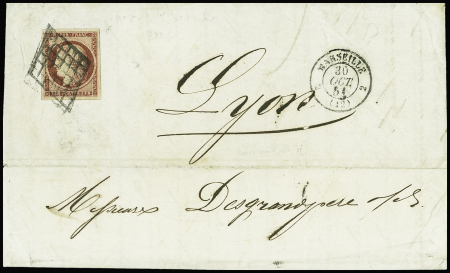 MARSEILLE
2 30 2
OCT.
51
(12)
Lyon
Messieurs Desgrandpere